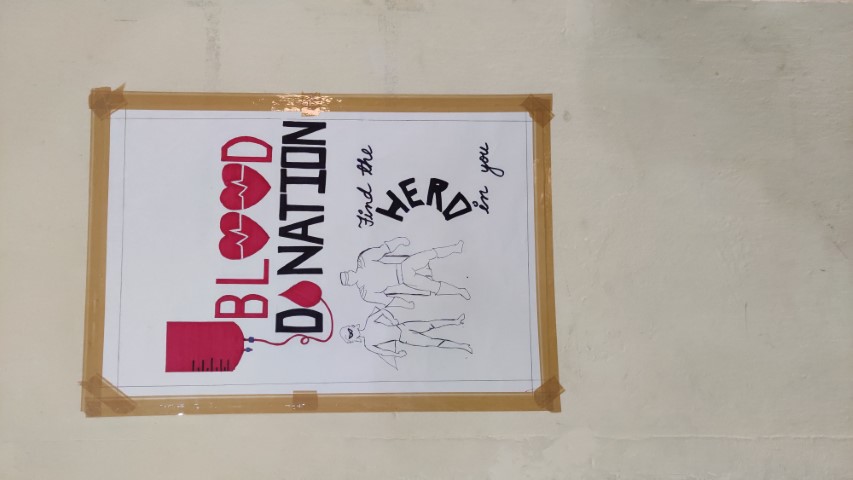 BLOOD
DONATION
Find the
HERO
in you